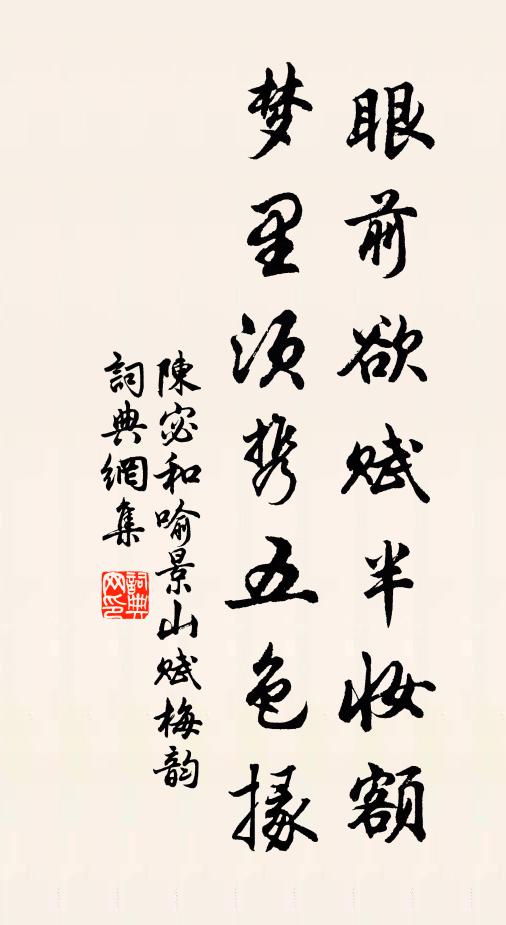 眼前欲赋半妆额
梦里须携五色掾
陳宓和喻景山赋梅韵
詞典網集
詞典
网印